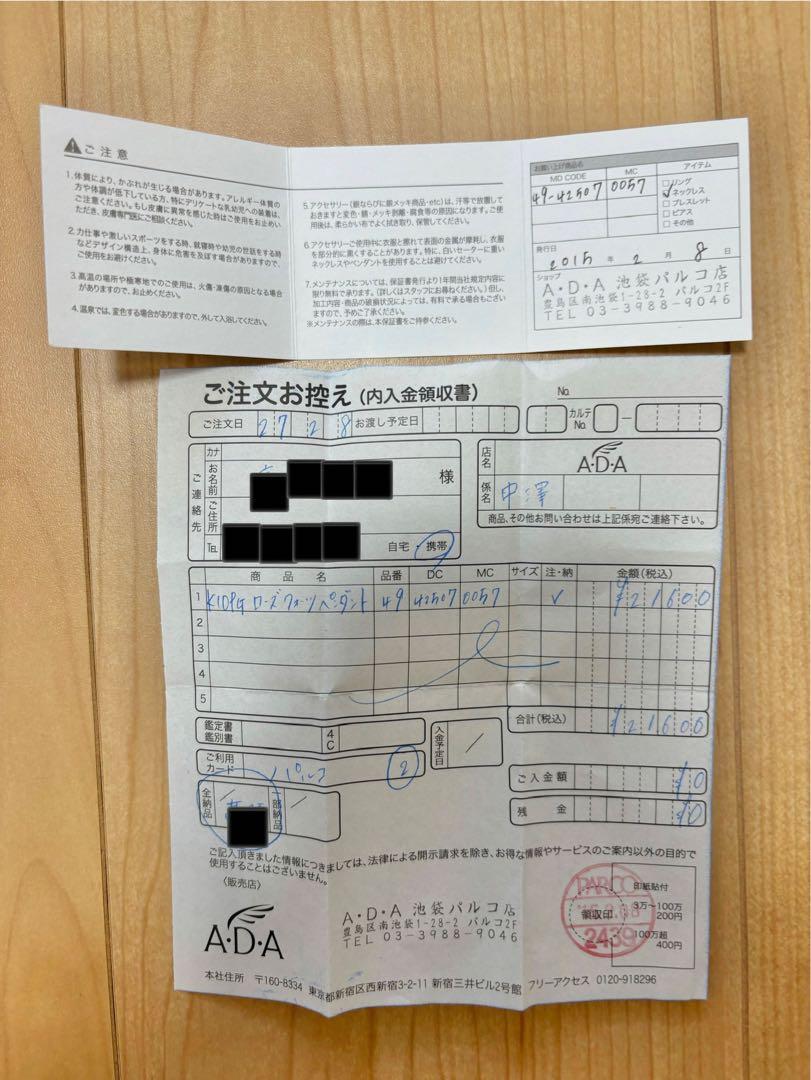 ご注意
1.体質により、かぶれが生じる場合があります。アレルギー体質の
方や体調が低下している方、特にデリケートな乳幼児への装着は、
ご注意ください。もし皮膚に異常を感じた時はご使用をお止めい
ただき、皮膚専門医にご相談ください。
2.力仕事や激しいスポーツをする時、就寝時や幼児の世話をする時
などデザイン構造上、身体に危害を及ぼす場合がありますので、
ご使用をお避けください。
3.高温の場所や極寒地でのご使用は、火傷・凍傷の原因となる場合
がありますので、お止めください。
4.温泉では、変色する場合がありますので、外して入浴してください。
5.アクセサリー(銀ならびに銀メッキ商品・etc)は、汗等で放置して
おきますと変色・錆・メッキ剥離・腐食等の原因になります。ご使
用後は、柔らかい布でよく拭き取り、保管してください。
6.アクセサリーご使用中に衣服と擦れて表面の金属が摩耗し、衣服
を部分的に黒くすることがあります。特に、白いセーターに重い
ネックレスやペンダントを使用することは避けてください。
7.メンテナンスについては、保証書発行より1年間当社規定内容に
限り無料で承ります。(詳しくはスタッフにお尋ねください。)但し、
加工内容・商品の破損状況によっては、有料で承る場合もござい
ますので、予めご了承ください。
※メンテナンスの際は、本保証書をご持参ください。
お買い上げ商品名
MD CODE MC アイテム
49-42507 0057
□リング
☑ネックレス
□ブレスレット
□ピアス
□その他
発行日
2015 年 2 月 8 日
ショップ
A・D・A 池袋パルコ店
豊島区南池袋1-28-2 パルコ2F
TEL 03-3988-9046
ご注文お控え (内入金領収書)
No.
ご注文日 27 2 8 お渡し予定日 カルテNo. －
ご連絡先
カナ
お名前 様
ご住所
TEL 自宅・携帯
店名 A・D・A
係名 中澤
商品、その他お問い合わせは上記係宛ご連絡下さい。
商品名 品番 DC MC サイズ 注・納 金額(税込)
1 K10PG ローズクォーツペンダント 49 42507 0057 ✓ ¥21600
2
3
4
5
合計(税込) ¥21600
鑑定書
鑑別書
4C
入金予定日 /
ご利用
カード パルコ ②
ご入金額 ¥0
全納品 / 一部納品 /
残金 ¥0
ご記入頂きました情報につきましては、法律による開示請求を除き、お得な情報やサービスのご案内以外の目的で
使用することはございません。
〈販売店〉
A・D・A
A・D・A 池袋パルコ店
豊島区南池袋1-28-2 パルコ2F
TEL 03-3988-9046
PARCO
領収印
2439
印紙貼付
3万～100万
200円
100万超
400円
本社住所 〒160-8334 東京都新宿区西新宿3-2-11 新宿三井ビル2号館 フリーアクセス 0120-918296